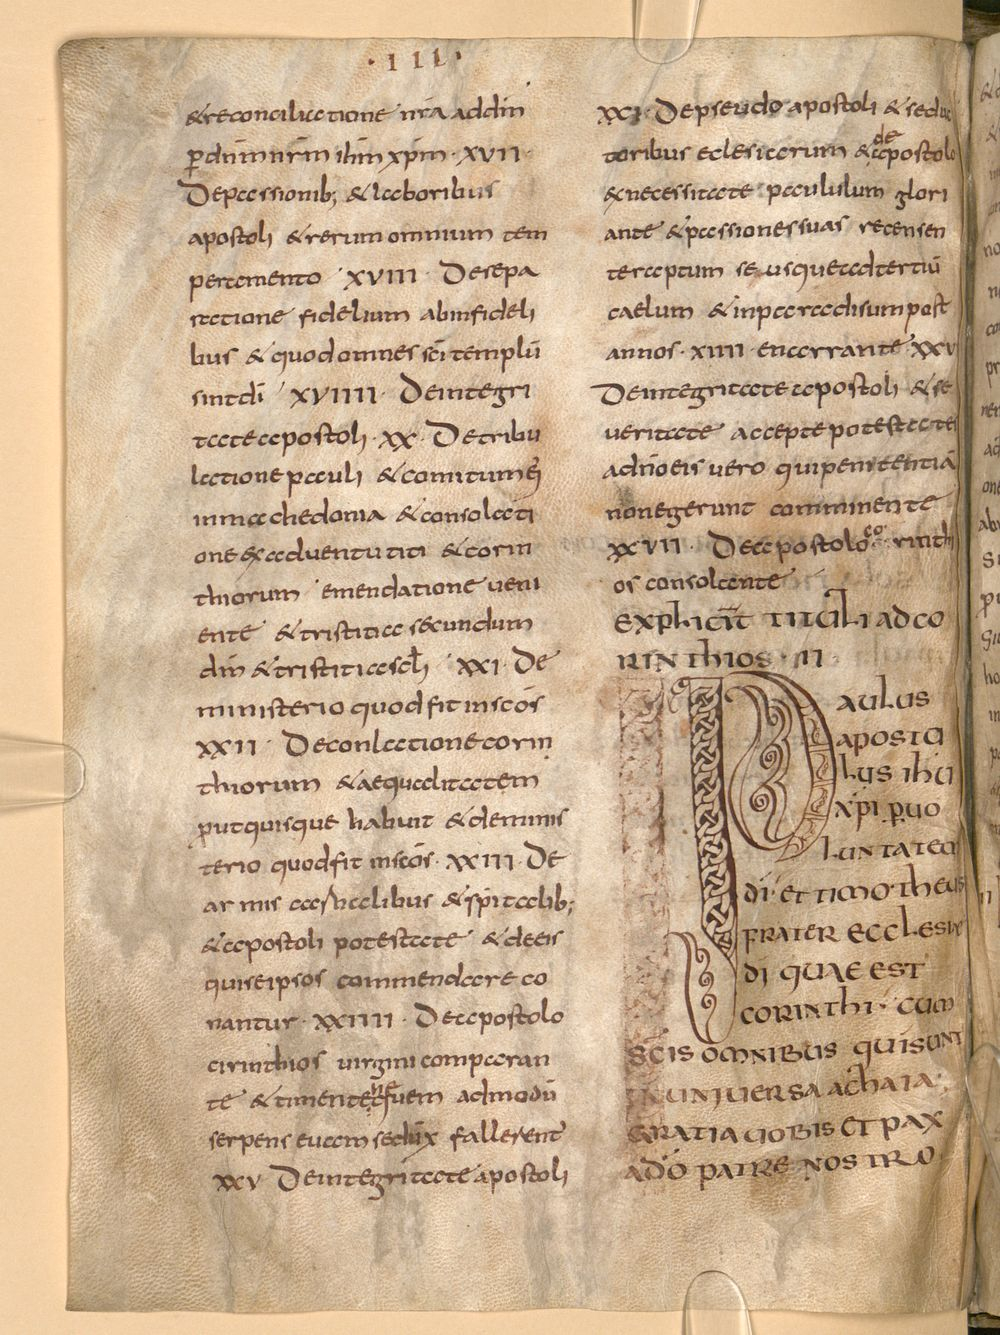 · III ·
& reconciliatione nra ad dm
p dnm nrm ihm xpm · XVII ·
De passionib; & laboribus
apostoli & rerum omnium tem
peramento · XVIII · De sepa
ratione fidelium ab infideli
bus & quod omnes sci templū
sint di · XVIIII · De integri
tate apostoli · XX · De tribu
latione pauli & comitum ei
in machedonia & consolati
one ex adventu titi & corin
thiorum emendatione veni
ente & tristitia secundum
dm & tristitia scli · XXI · De
ministerio quod fit in scōs
XXII · De conlatione corin
thiorum & aequalitatem
p ut quisque habuit & de minis
terio quod fit in scōs · XXIII · De
armis aecclibus & spitalib;
& apostoli potestate & de eis
qui se ipsos commendare co
nantur · XXIIII · De apostolo
cirinthios virgini comparan
te & timente ne quem admodū
serpens euam sedux fallerent
XXV · De integritate apostoli
XXI · De pseudo apostoli & seduc
toribus eclesiarum & de apostolo
& necessitate paululum glori
ante & passiones suas recensen
te raptum se usque ad tertiū
caelum & in paradisum post
annos · XIIII · enarrante · XXV
De integritate apostoli & se
veritate accepte potestates
ad nō eis vero qui penitentiā
non egerunt comminente
XXVII · De apostolo corinthi
os consolante
explicit tituli ad co
rinthios · II
Paulus
aposto
lus ihu
xpi · p uo
luntate
di · et timotheus
frater ecclesiae
di quae est
corinthi · cum
scis omnibus qui sunt
in universa achaia ·
gratia vobis et pax
a dō patre nostro